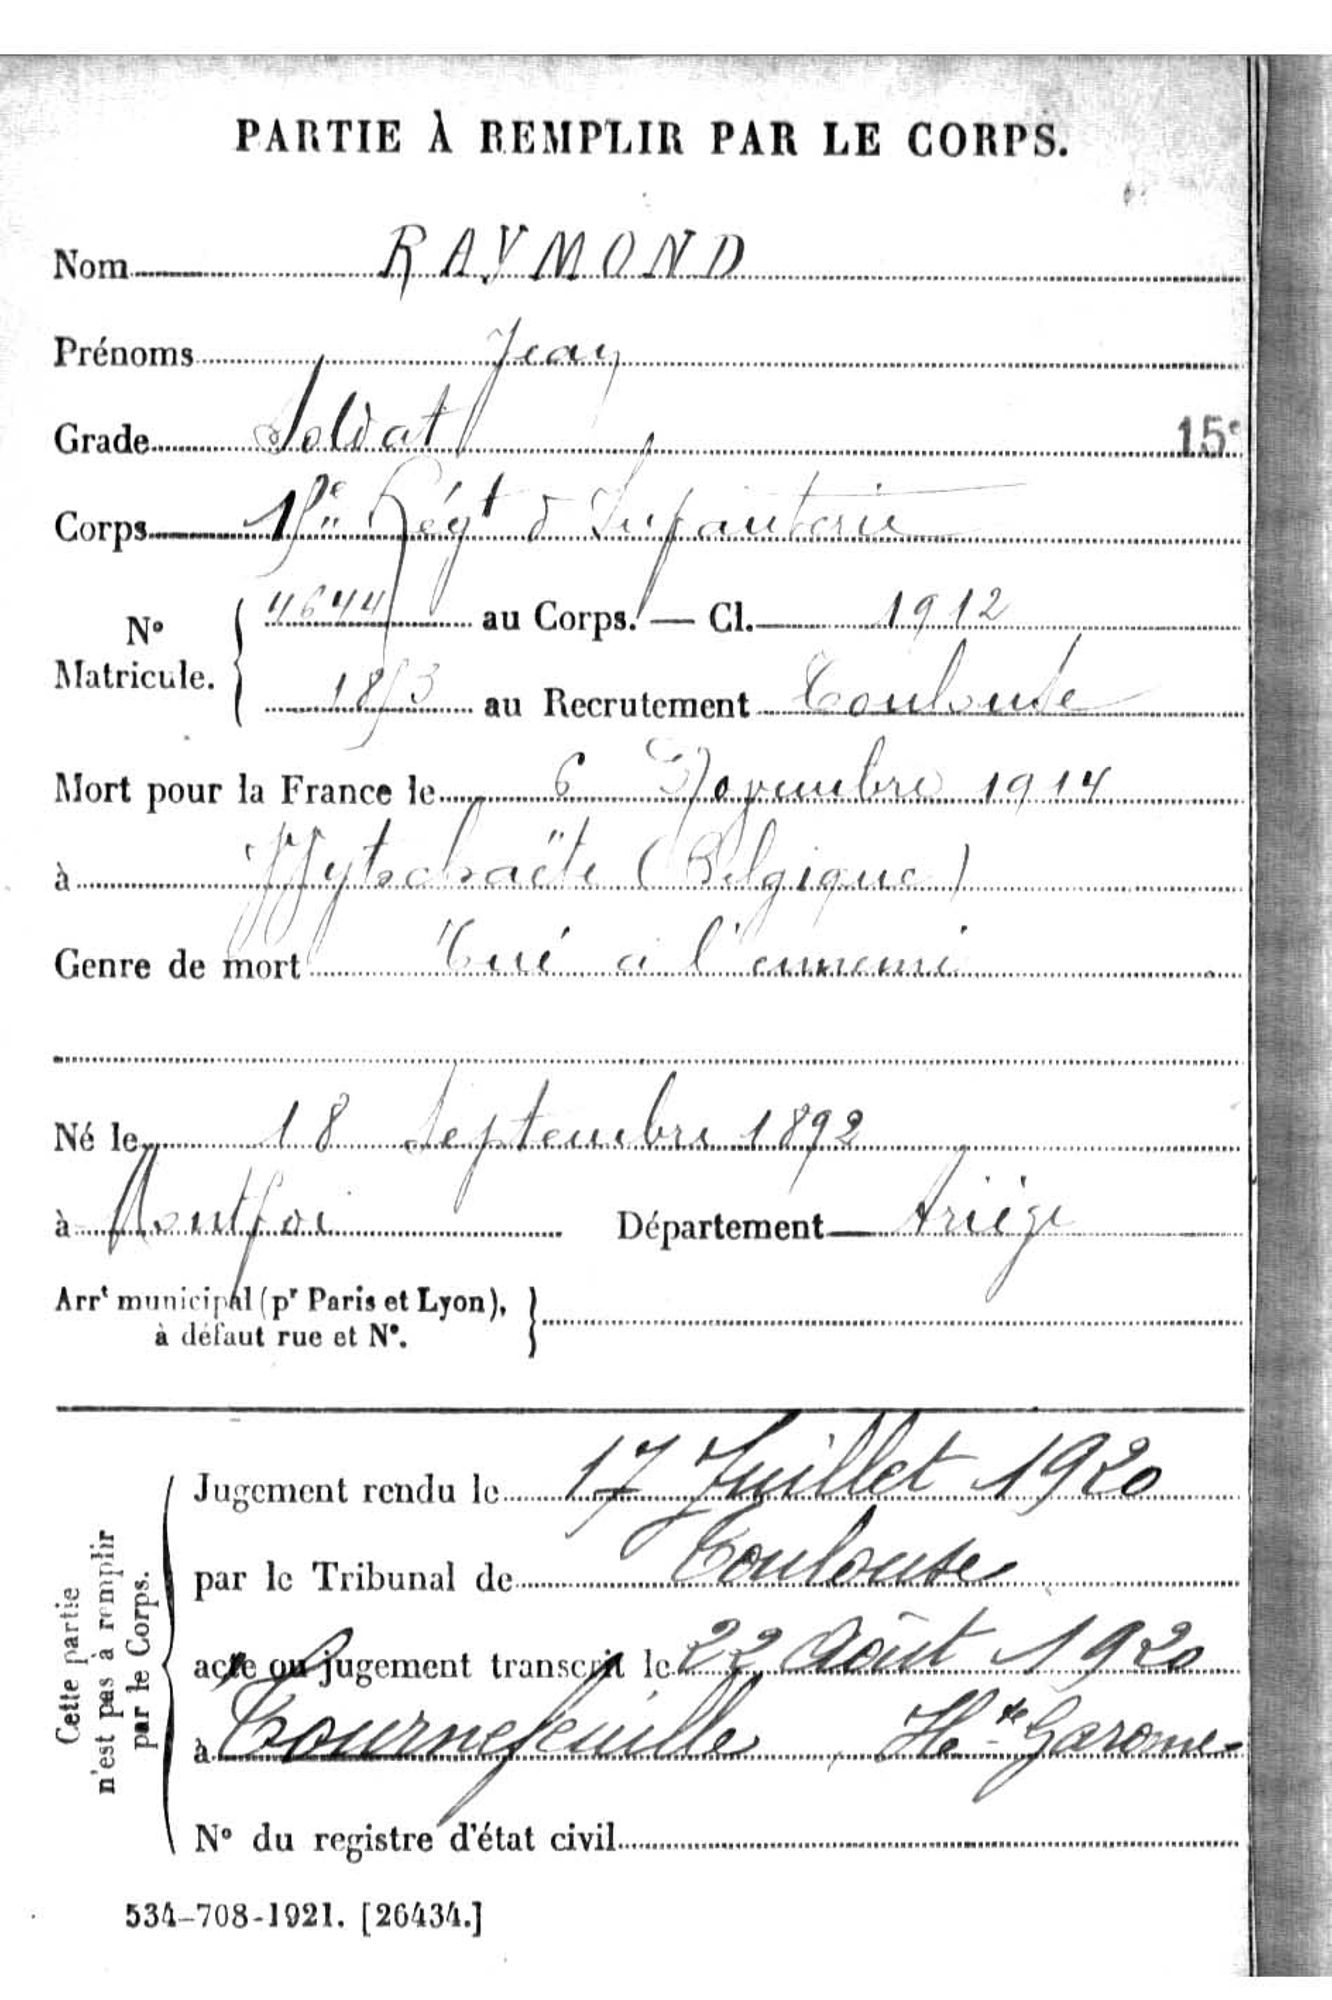 PARTIE À REMPLIR PAR LE CORPS.
Nom RAYMOND
Prénoms Jean
Grade Soldat
15e
Corps 15e Régt d'Infanterie
No Matricule. 4644 au Corps. — Cl. 1912
1853 au Recrutement Toulouse
Mort pour la France le 6 Novembre 1914
à Wytschaëte (Belgique)
Genre de mort Tué à l'ennemi
Né le 18 Septembre 1892
à Département Ariège
Arrt municipal (pr Paris et Lyon),
à défaut rue et No.
Cette partie
n'est pas à remplir
par le Corps.
Jugement rendu le 17 Juillet 1920
par le Tribunal de Toulouse
acte ou jugement transcrit le 22 Août 1920
à Tournefeuille, Hte-Garonne
No du registre d'état civil
534-708-1921. [26434.]